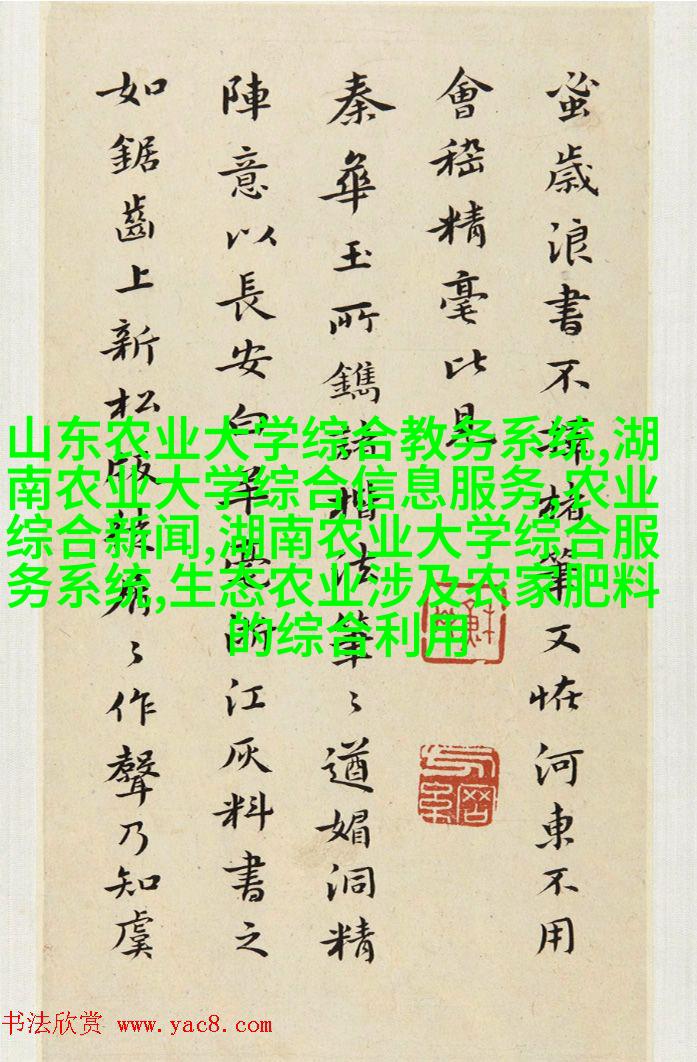 蚤歲浪書不擇楮筆又恠河東不用
會稽精毫比見
秦華玉所鐫諸楷法筆〻遒媚洞精
陣意以長安白羊毫江灰料書之
如鋸齒上新松板〻作聲乃知虞
山东农业大学综合教务系统,湖
南农业大学综合信息服务,农业
综合新闻,湖南农业大学综合服
务系统,生态农业涉及农家肥料
的综合利用
书法欣赏 www.yac8.com